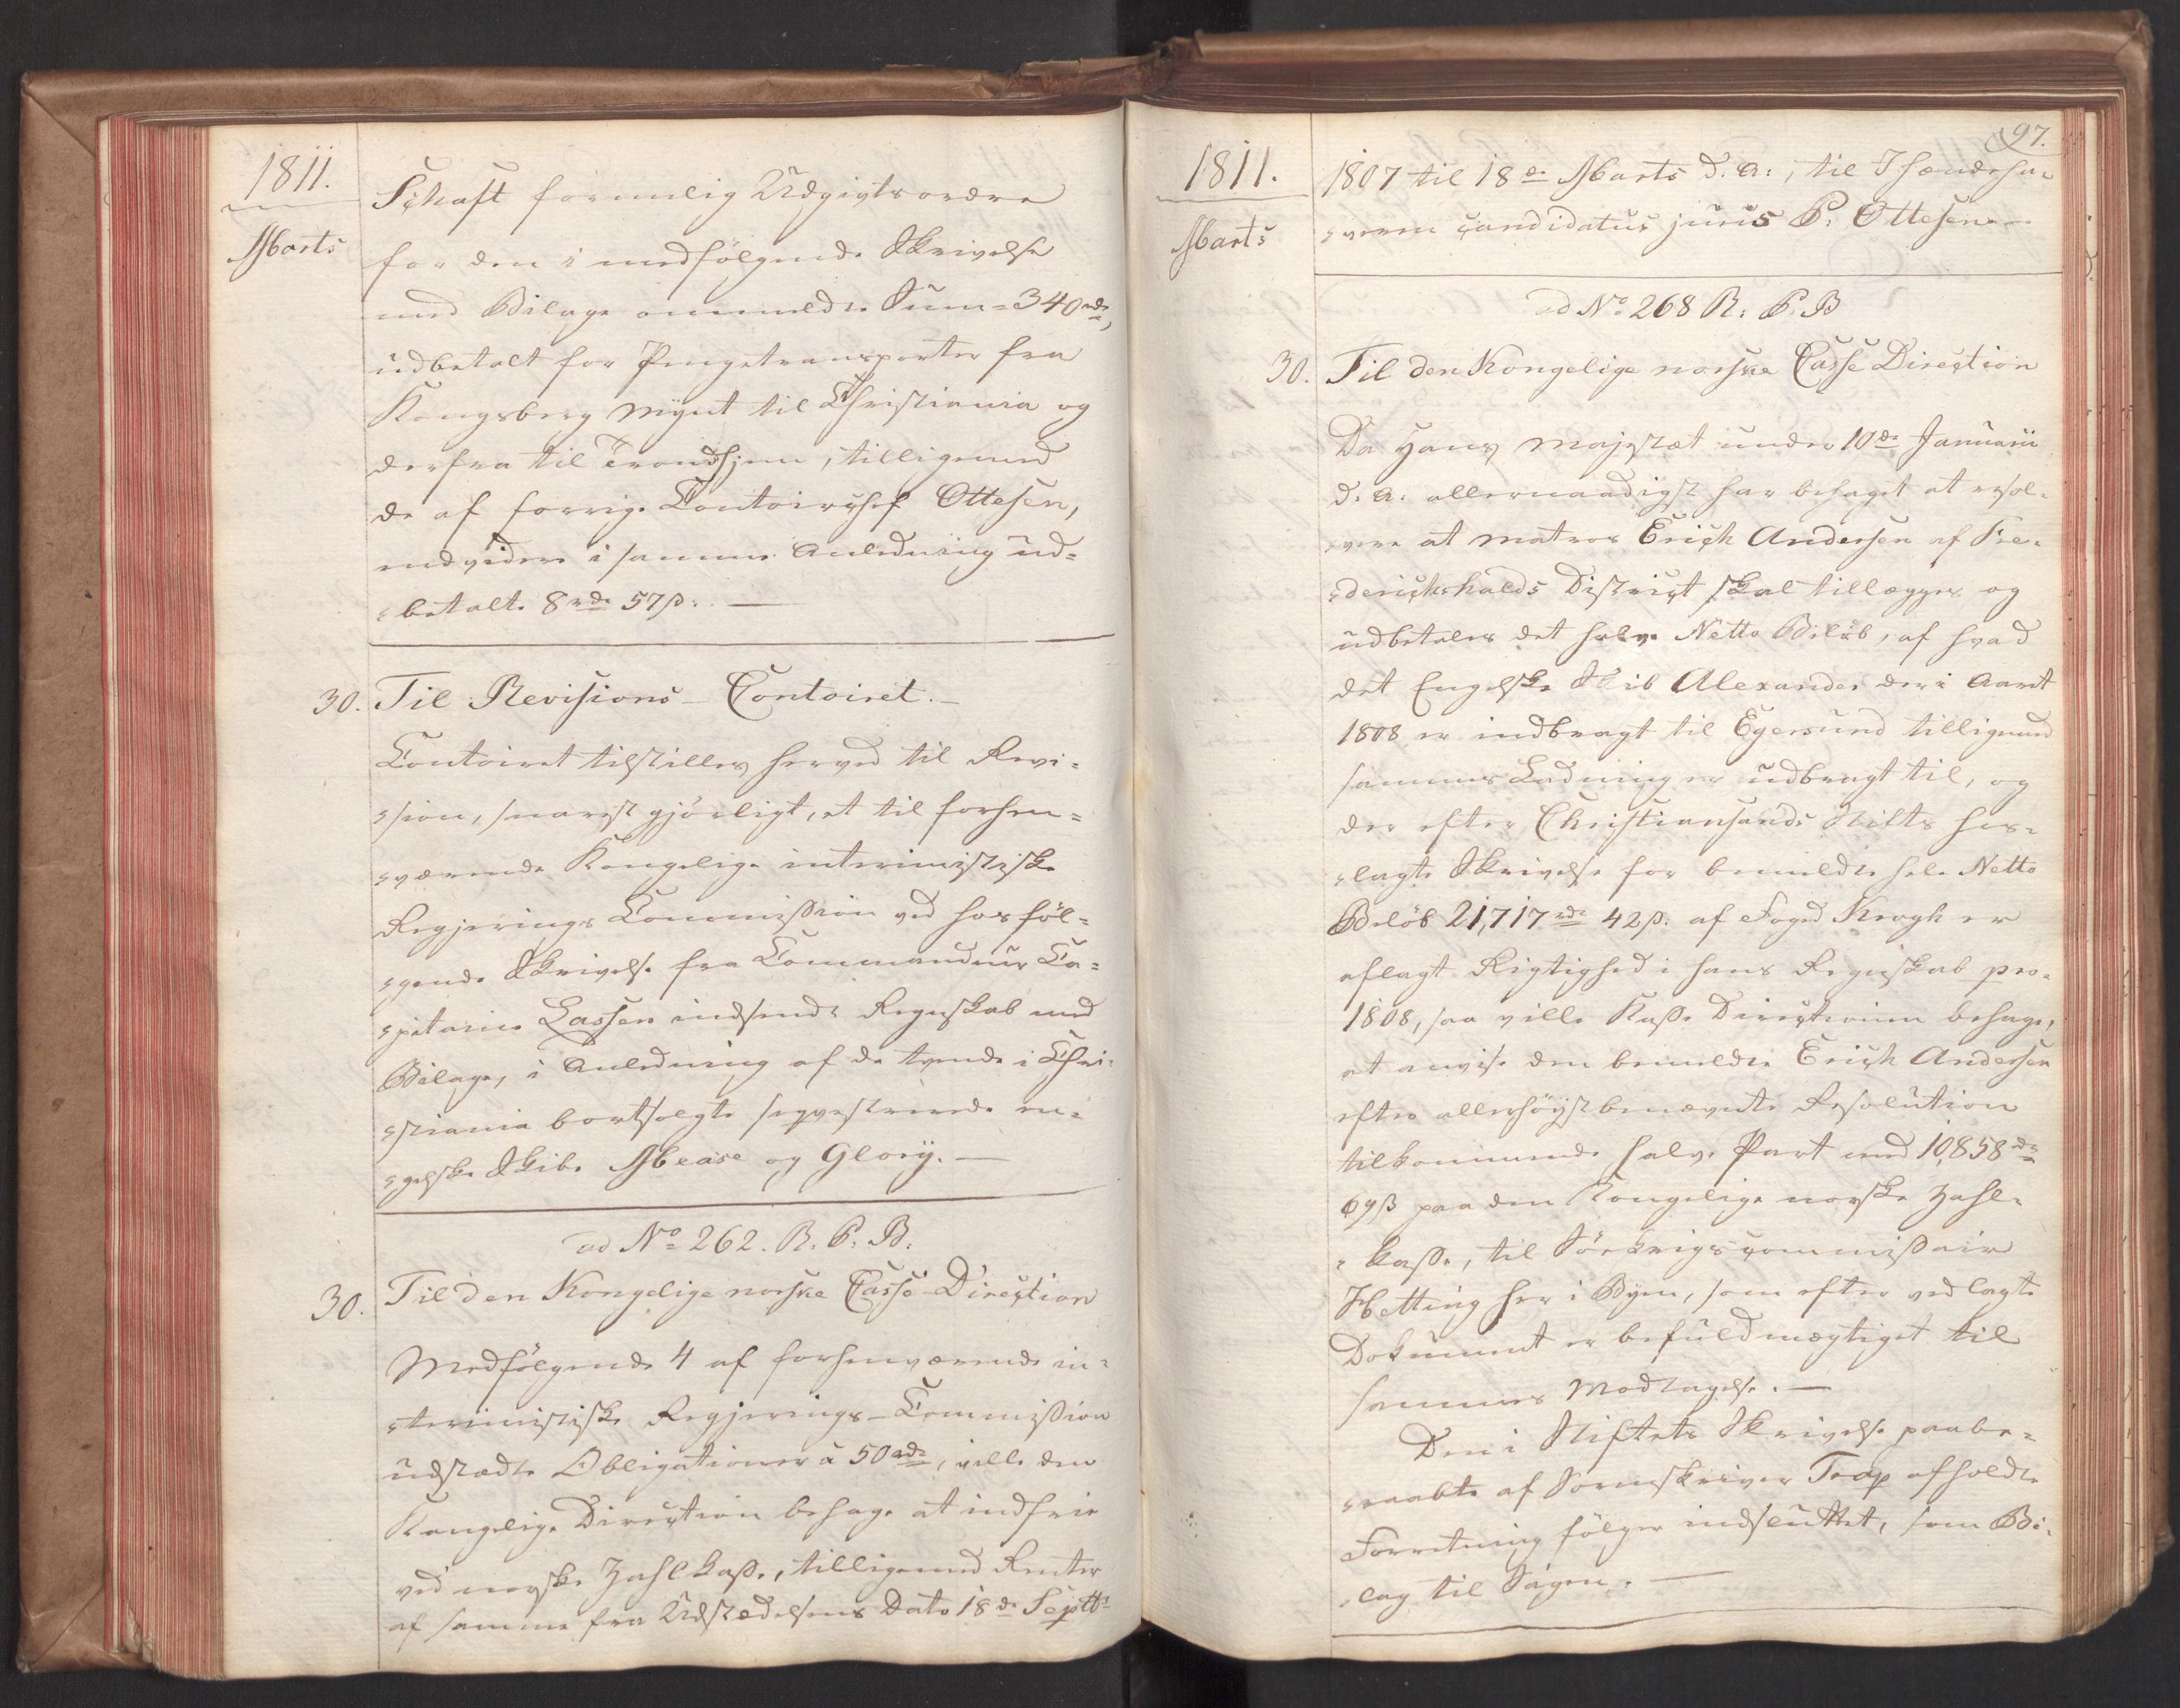 1811.
Marts
Schaft formelig Udgivtsordre
for den i medfölgende Skrivelse
med Bilage ommeldte Sum = 340 rd,
udbetalt for Pengetransporter fra
Kongsberg Mynt til Christiania og
derfra til Trondhjem, tilligemed
de af forrige Contoirchef Ottesen,
endvidere i samme Anledning ud=
=betalte 8 rd 57 ß. —
30. Til Revisions-Contoiret.-
Contoiret tilstilles herved til Revi=
=sion, snarest gjörligt, et til forhen=
=værende Kongelige interimistiske
Regjerings Commission ved hosföl=
=gende Skrivelse fra Commandeur Ca=
=pitaine Lassen indsendt Regnskab med
Bilage, i Anledning af de tvende i Chri=
=stiania bortsolgte seqvestrerede en=
=gelske Skibe Mease og Glory. —
ad No 262. R. P. B.
30. Til den Kongelige norske Casse-Direction
Medfölgende 4 af forhenværende in=
=terimistiske Regjerings-Commission
udstædte Obligationer a 50 rd, ville den
Kongelige Direction behage at indfrie
ved norske Zahlkasse, tilligemed Renter
af samme fra Udstædelsens Dato 18de Septbr
97.
1811.
Marts
1807 til 18de Marts d. A., til Ihændeha=
=veren candidatus juris P. Ottesen. —
ad No 268 R. P. B
30. Til den Kongelige norske Casse Direction
Da Hans Majestæt under 10de Januarii
d. A. allernaadigst har behaget at resol=
=vere at Matros Erich Andersen af Fre=
=derichshalds District skal tillægges og
udbetales det halve Netto Belöb, af hvad
det Engelske Skib Alexander der i Aaret
1808 er indbragt til Egersund tilligemed
sammes Ladning er udbragt til, og
der efter Christiansands Stifts her=
=lagte Skrivelse for bemeldte hele Netto
Belöb 21,717 rd 42 ß. af Foged Krogh er
aflagt Rigtighed i hans Regnskab pro.
1808, saa ville Kasse Directionen behage,
at anvise den bemeldte Erich Andersen
efter allerhöystbenævnte Resolution
tilkommende halve Part med 10,858 rd
69 ß paa den Kongelige norske Zahl=
=kasse, til Söekrigscommissair
Hetting her i Byen, som efter vedlagte
Dokument er befuldmægtiget til
sammes Modtagelse. —
Den i Stiftets Skrivelse paabe=
=raabte af Sorenskriver Trap afholdte
Forretning fölger indsluttet, som Bi=
=lag til Sagen. —